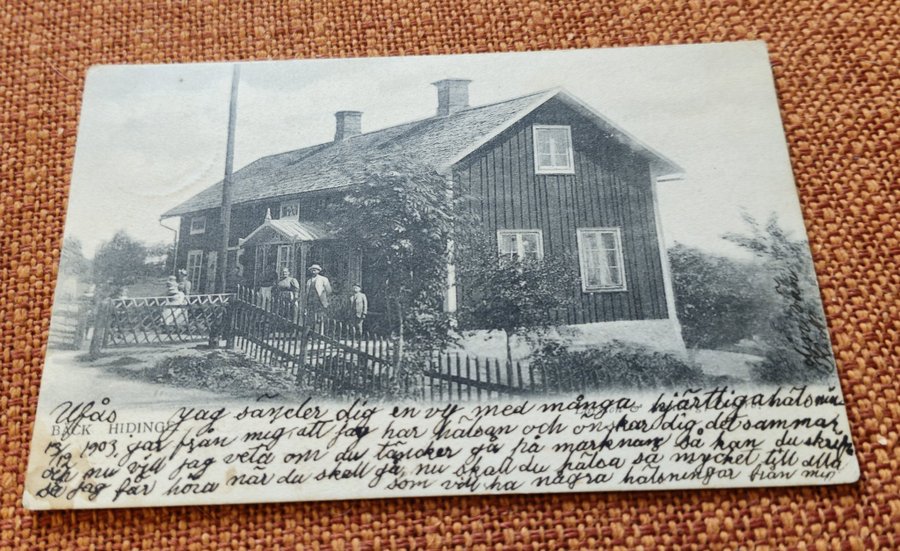 Ufås Jag sänder dig en vy med många hjärtliga hälsnin
BÄCK HIDINGE
13/9 1903, gar från mig, att jag har hälsan och önskar dig det sammar
den nu vill jag veta om du täncker gå på marknan så kan du skrifv
så jag får höra när du skall gå, nu skall du hälsa så mycket till alla
som vill ha några hälsningar från mig